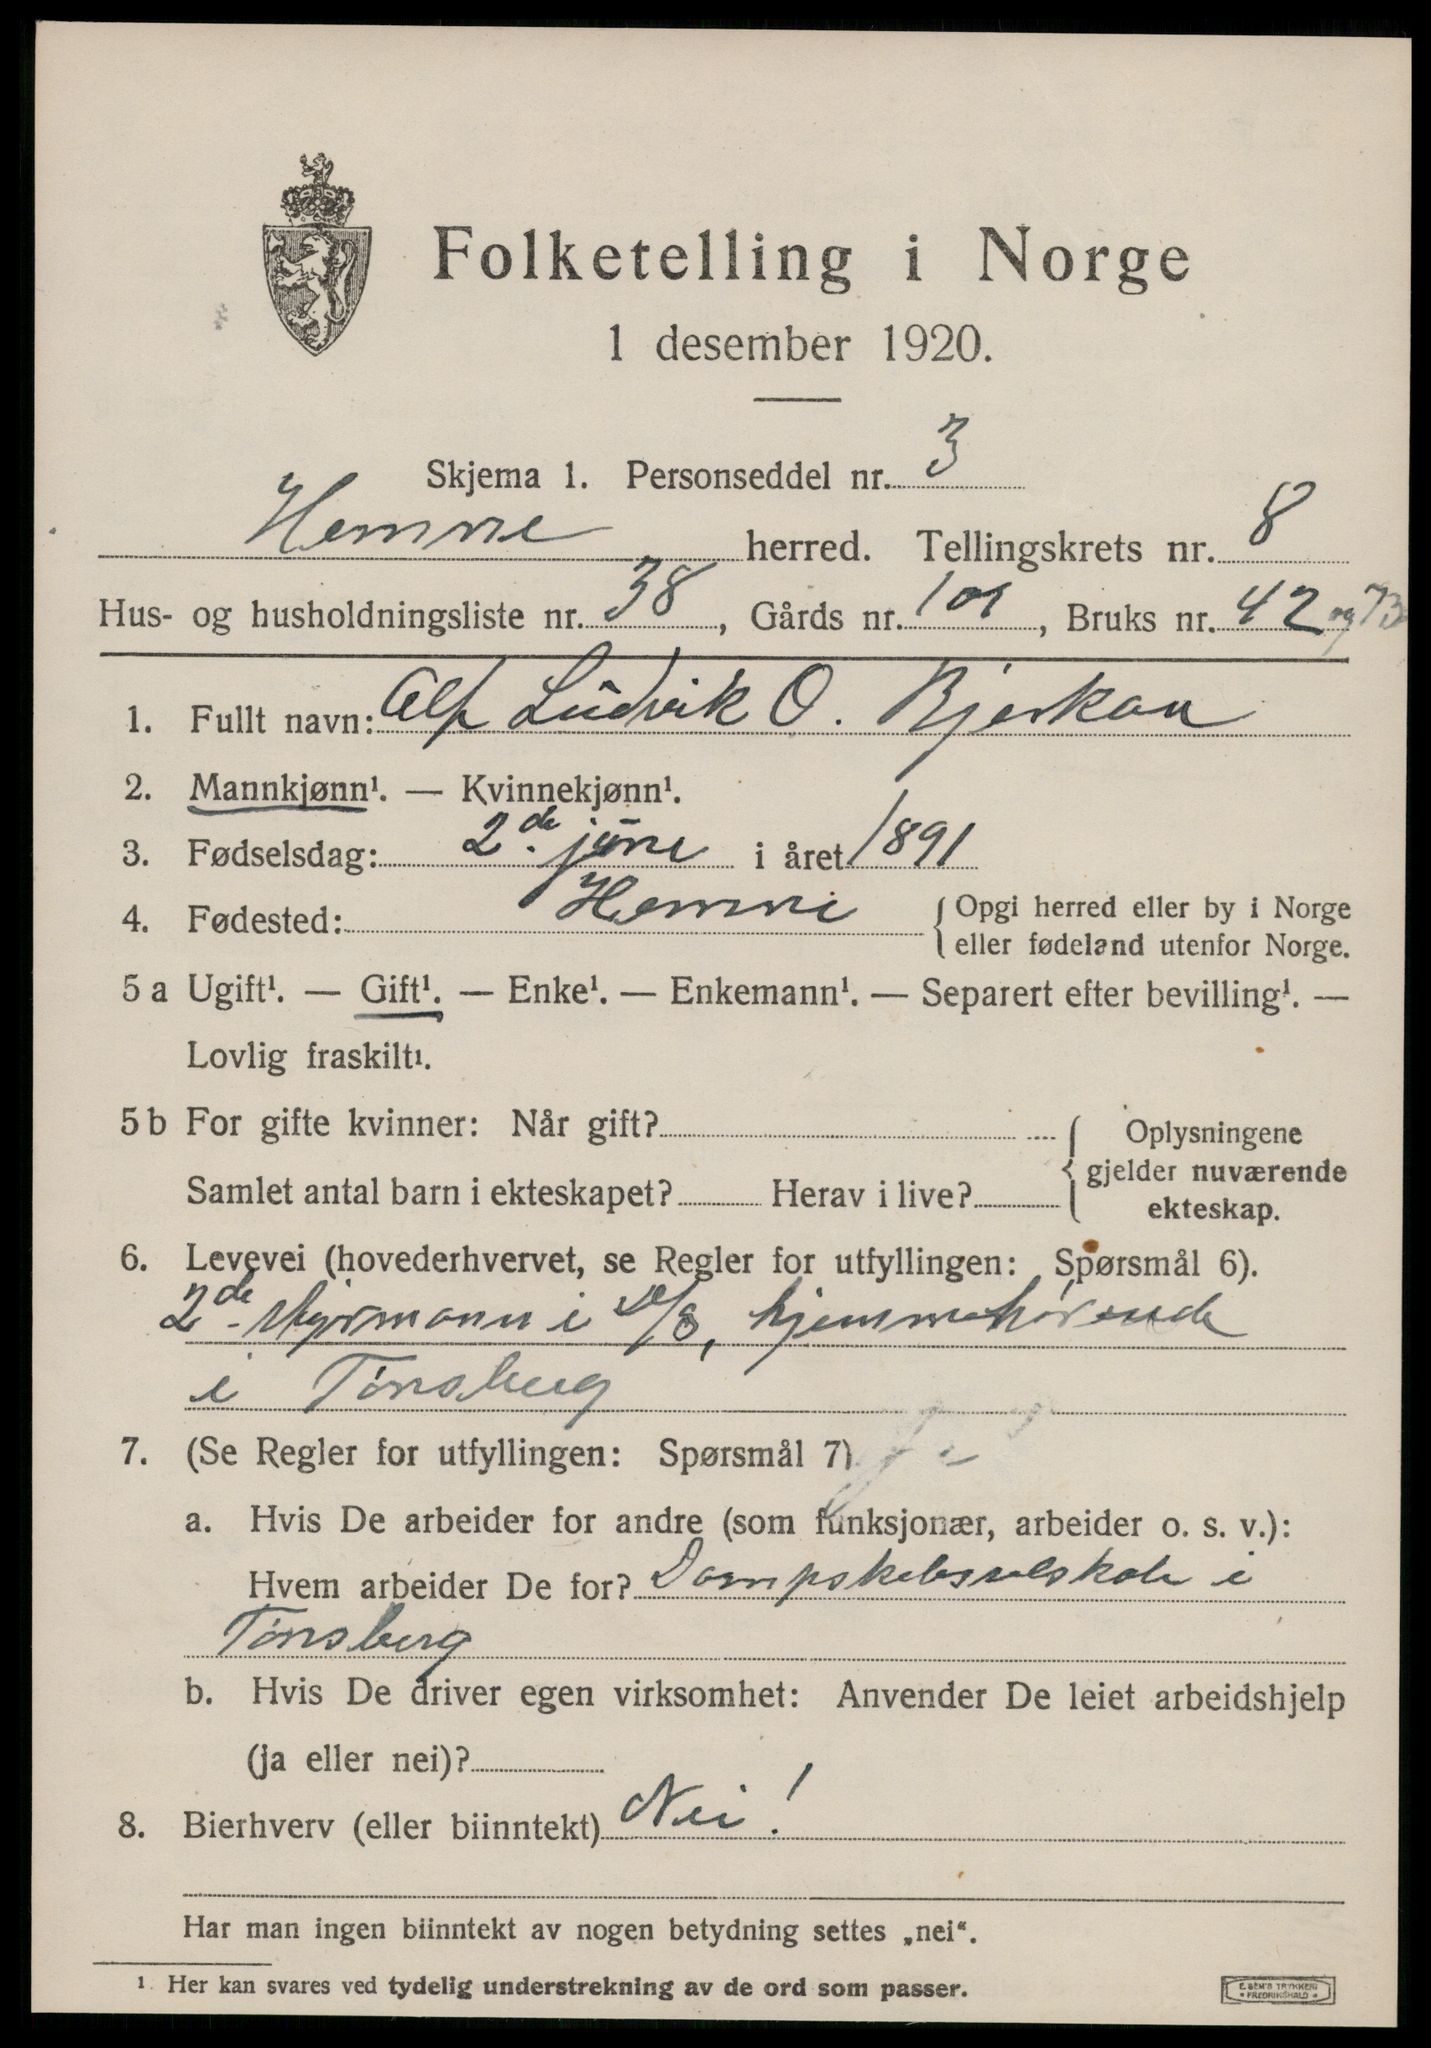 Folketelling i Norge
1 desember 1920.
Skjema 1. Personseddel nr. 3
Hemne herred. Tellingskrets nr. 8
Hus- og husholdningsliste nr. 38, Gårds nr. 101, Bruks nr. 42 og 73
1. Fullt navn: Alf Ludvik O. Bjerkan
2. Mannkjønn¹. — Kvinnekjønn¹.
3. Fødselsdag: 2de juni i året 1891
4. Fødested: Hemne { Opgi herred eller by i Norge
eller fødeland utenfor Norge.
5 a Ugift¹. — Gift¹. — Enke¹. — Enkemann¹. — Separert efter bevilling¹. —
Lovlig fraskilt¹.
5 b For gifte kvinner: Når gift? { Oplysningene
gjelder nuværende
Samlet antal barn i ekteskapet? Herav i live? ekteskap.
6. Levevei (hovederhvervet, se Regler for utfyllingen: Spørsmål 6).
2de styrmann i D/S, hjemmehørende
i Tønsberg
7. (Se Regler for utfyllingen: Spørsmål 7)
a. Hvis De arbeider for andre (som funksjonær, arbeider o. s. v.):
Hvem arbeider De for? Dampskibsselskab i
Tønsberg
b. Hvis De driver egen virksomhet: Anvender De leiet arbeidshjelp
(ja eller nei)?
8. Bierhverv (eller biinntekt) Nei!
Har man ingen biinntekt av nogen betydning settes „nei“.
¹ Her kan svares ved tydelig understrekning av de ord som passer.
E. SEM'S TRYKKERI
* FREDRIKSHALD *